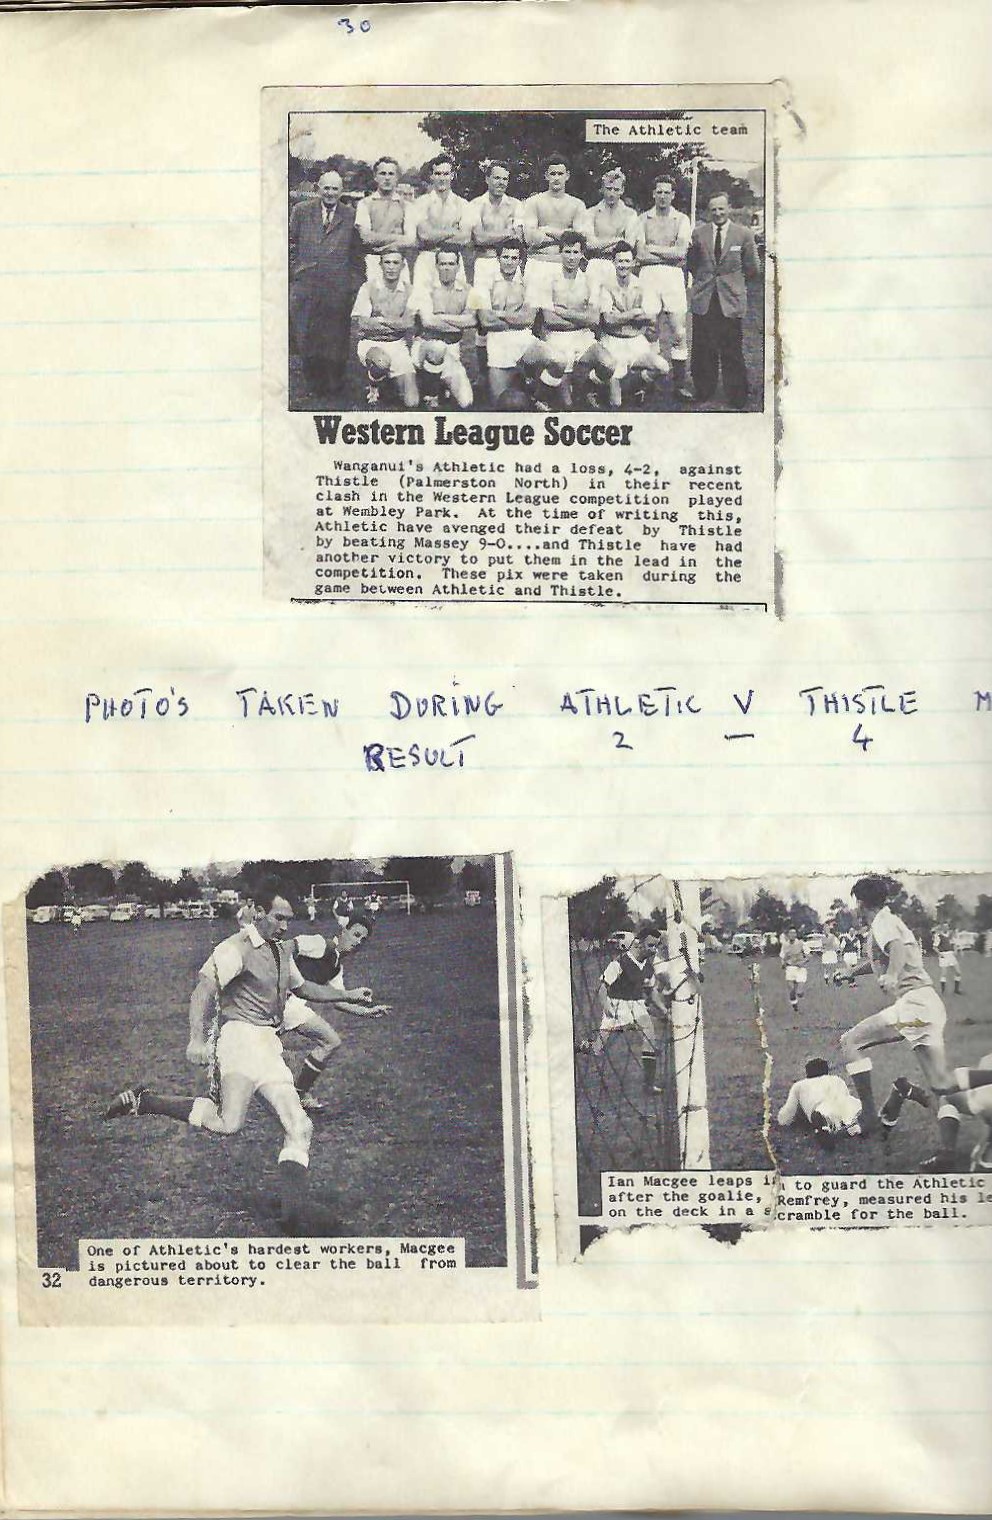 30
The Athletic team
Western League Soccer
Wanganui's Athletic had a loss, 4-2, against
Thistle (Palmerston North) in their recent
clash in the Western League competition played
at Wembley Park. At the time of writing this,
Athletic have avenged their defeat by Thistle
by beating Massey 9-0....and Thistle have had
another victory to put them in the lead in the
competition. These pix were taken during the
game between Athletic and Thistle.
PHOTO'S TAKEN DURING ATHLETIC V THISTLE M
RESULT 2 — 4
One of Athletic's hardest workers, Macgee
is pictured about to clear the ball from
dangerous territory.
32
Ian Macgee leaps in to guard the Athletic
after the goalie, Remfrey, measured his le
on the deck in a scramble for the ball.